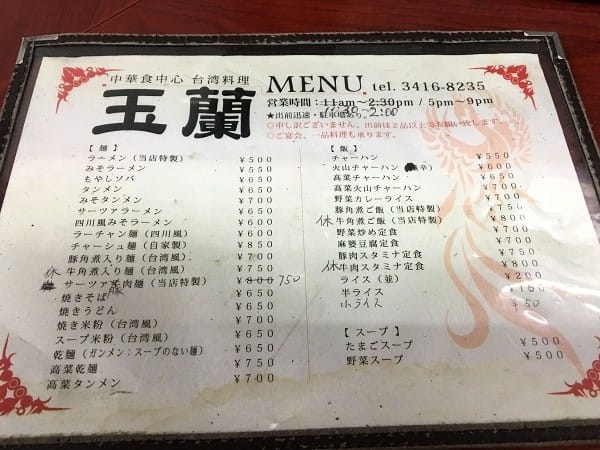 中華食中心 台湾料理
玉蘭
MENU tel. 3416-8235
営業時間：11am～2:30pm / 5pm～9pm
11:30 2:00
★出前迅速・駐車場あり。
◎申し訳ございません、出前は2品以上でお願い致します。
◎ご宴会、一品料理も承ります。
【 麺 】
ラーメン（当店特製） ¥500
みそラーメン ¥550
もやしソバ ¥650
タンメン ¥650
みそタンメン ¥700
サーツァラーメン ¥650
四川風みそラーメン ¥600
ラーチャン麺（四川風） ¥600
チャーシュ麺（自家製） ¥850
豚角煮入り麺（台湾風） ¥700
休 牛角煮入り麺（台湾風） ¥750
サーツァ羊肉麺（当店特製） ¥800 750
豚
焼きそば ¥650
焼きうどん ¥650
焼き米粉（台湾風） ¥700
スープ米粉（台湾風） ¥650
乾麺（ガンメン：スープのない麺） ¥650
高菜乾麺 ¥750
高菜タンメン ¥700
【 飯 】
チャーハン ¥550
火山チャーハン（辛） ¥600
高菜チャーハン ¥650
高菜火山チャーハン ¥700
野菜カレーライス ¥600
豚角煮ご飯（当店特製） ¥700
休 牛角煮ご飯（当店特製） ¥800
野菜炒め定食 ¥700
麻婆豆腐定食 ¥700
豚肉スタミナ定食 ¥700
休 牛肉スタミナ定食 ¥800
ライス（並） ¥200
半ライス ¥150
小ライス ¥50
【 スープ 】
たまごスープ ¥500
野菜スープ ¥500